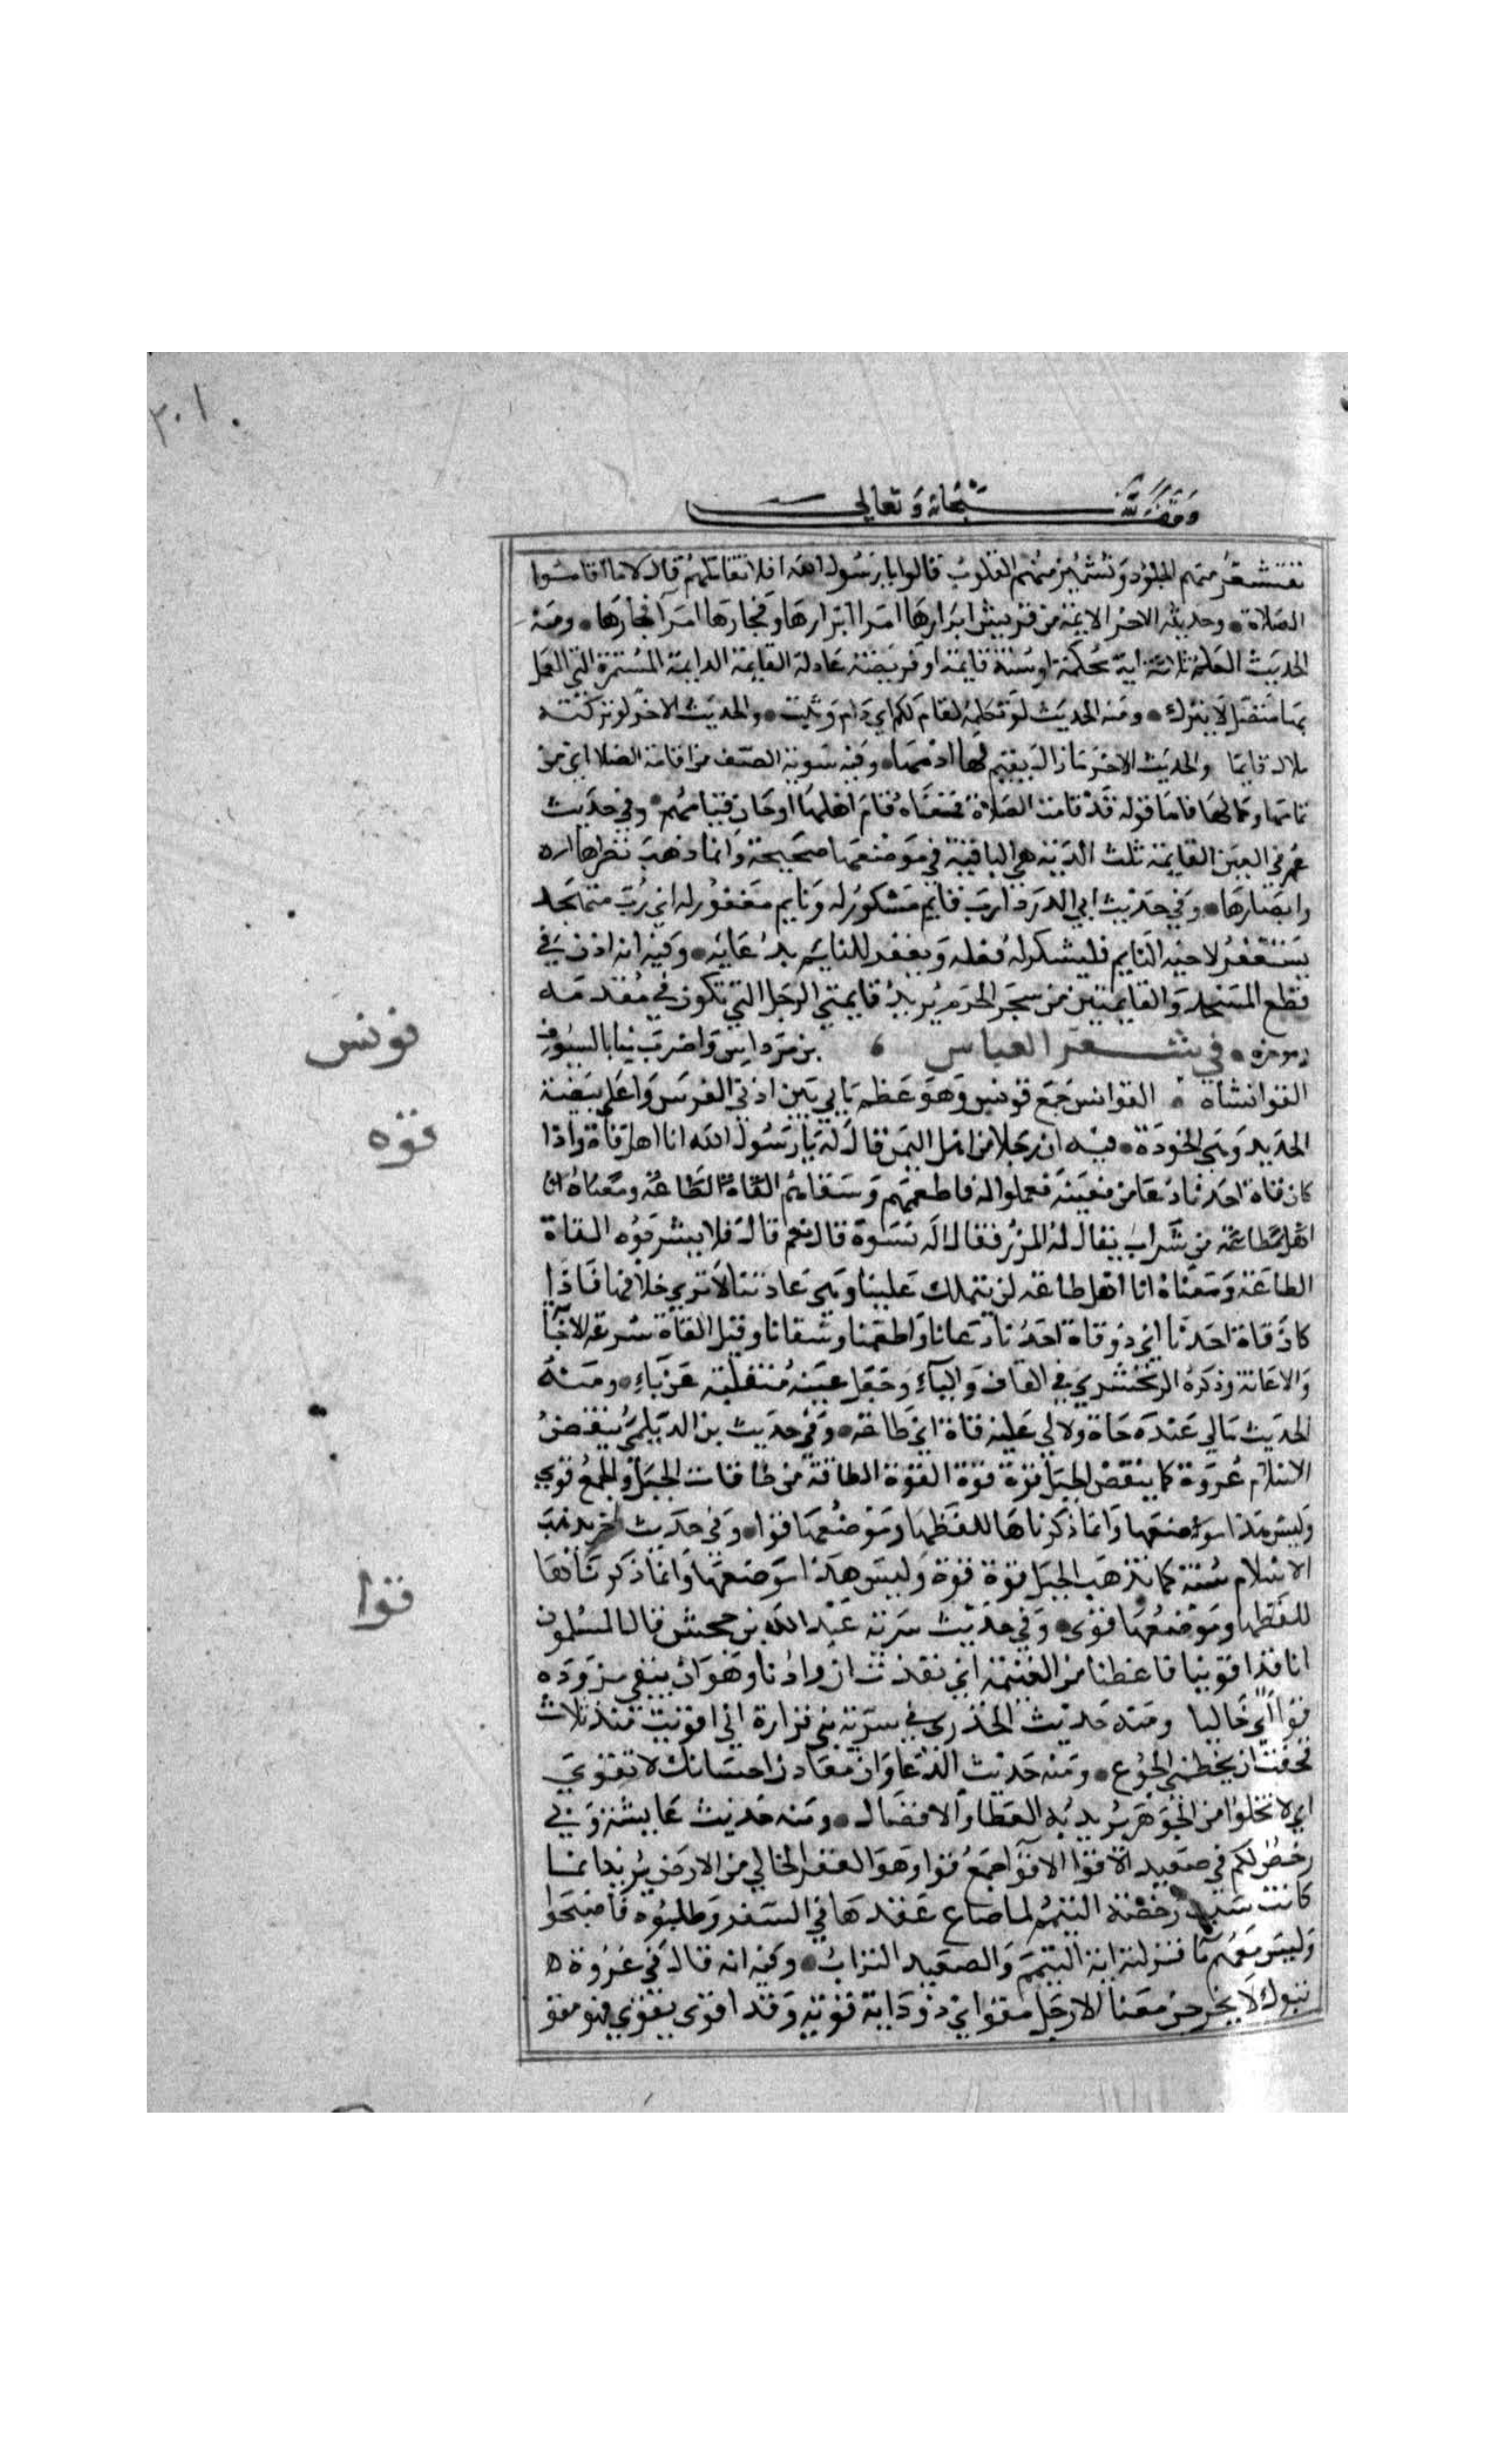 ٣٠١
وقف لله سبحانه وتعالى
تقشعر منهم الجلود وتشمئز منهم القلوب قالوا يا رسول الله افلا نقاتلهم قال لا ما اقاموا
الصلاة وحديثه الاخر الايمة من قريش ابرارها امرا ابرارها وفجارها امرا فجارها ومنه
الحديث العلم ثلاثة اية محكمة او سنة قايمة او فريضة عادلة القايمة الدايمة المستمرة التي العمل
بها متصل لا يترك ومنه الحديث لو لم تكله لقام لكم اي دام وثبت والحديث الاخر لو تركته
مازال قايما والحديث الاخر مازال يقيم لها ادمها وفيه تسوية الصف من اقامة الصلا اي من
تمامها وكمالها فاما قوله قد قامت الصلاة فمعناه قام اهلها او حان قيامهم وفي حديث
عمر في العين القايمة ثلث الدية هي الباقية في موضعها صحيحة وانما ذهب نظرها
وابصارها وفي حديث ابي الدردا رب قايم مشكور له ونايم مغفور له اي رب متهجد
يستغفر لاخيه النايم فيشكر له فعله ويغفر للنايم بدعايه وفيه انه اذن في
قطع المسد والقايمتين من شجر الحرم يريد قايمتي الرحل التي تكون في مقدمه
وموخره في شعر العباس بن مرداس واضرب منا بالسيوف
القوانسا القوانس جمع قونس وهو عظم ناتي بين اذني الفرس واعلى بيضة
الحديد وهي الخوذة فيه ان رجلا من اهل اليمن قال له يا رسول الله انا اهل قاة واذا
كان قاة احدنا دعا من يعينه فعملوا له فاطعمهم وسقاهم القاة الطاعة ومعناه انا
اهل طاعة من شراب يقال له المزر فقال اله نشوة قال نعم قال فلا يشربوه القاة
الطاعة ومعناه انا اهل طاعة لمن يتملك علينا وهي عادتنا لا نري خلافها فاذا
كان قاة احدنا اي ذو قاة احدنا دعانا واطعمنا وسقانا وقيل القاة سرعة الاجابة
والاعانة وذكره الزمخشري في القاف والياء وجعل عينه منقلبة عن ياء ومنه
الحديث مالي عنده جاة ولا لي عليه قاة اي طاعة وفي حديث بن الديلمي ينقض
الاسلام عروة كما ينقض الحبل قوة قوة القوة الطاقة من طاقات الحبل والجمع قوي
وليس هذا موضعها وانما ذكرناها للفظها وموضعها قوا وفي حديث اخر يذهب
الاسلام سنة كما يذهب الحبل قوة قوة وليس هذا موضعها وانما ذكرناها
للفظها وموضعها قوى وفي حديث سرية عبد الله بن جحش قال المسلمون
انا قد اقوينا فاعطنا من الغنيمة اي نفذت ازوادنا وهو ان يبقي مزوده
قوا اي خاليا ومنه حديث الخدري في سرية بني فزارة اني اقويت منذ ثلاث
فخفت ان يحطمني الجوع ومنه حديث الدعا وان معادن احسانك لا تقوي
اي لا تخلوا من الجوهر يريد به العطا والافضال ومنه حديث عايشة وبي
رخص لكم في صعيد الاقوا الاقوا جمع قوا وهو القفر الخالي من الارض يريد انها
كانت سبب رخصة التيمم لما ضاع عقدها في السفر وطلبوه فاصبحوا
وليس معهم ما فنزلت اية التيمم والصعيد التراب وفيه انه قال في غزوة
تبوك لا يخرجن معنا الا رجل مقو اي ذو دابة قوية وقد اقوى يقوي فهو مقو
قونس
قوه
قوا